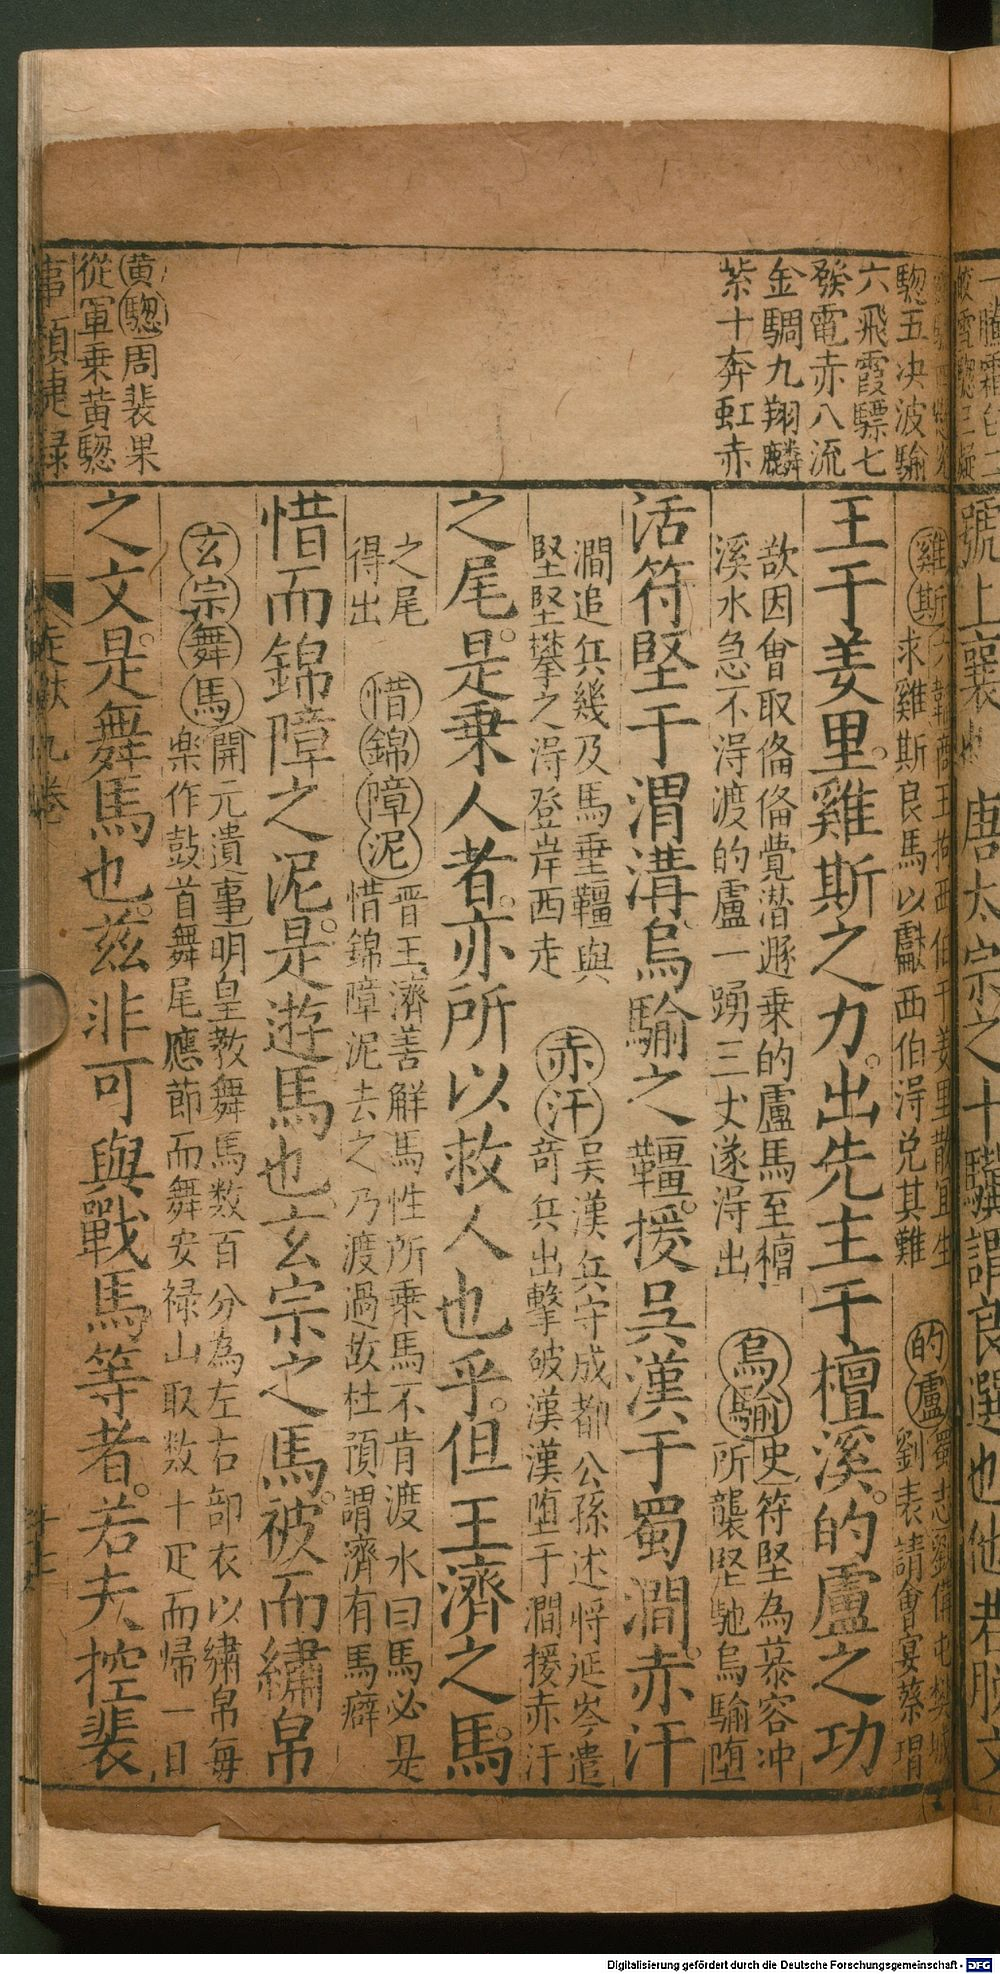 驄五决波騟
六飛霞驃七
發電赤八流
金騧九翔麟
紫十奔虹赤
黃驄周裴果
從軍乗黄驄
雞斯六韜商王拘西伯于姜里散宜生
求雞斯良馬以獻西伯淂兌其難
的盧蜀志劉備屯樊城
劉表請會宴蔡瑁
王于姜里。雞斯之力。出先主于檀溪。的盧之功
欲因會取俻俻覺潜遯乗的盧馬至檀
溪水急不淂渡的盧一踴三丈遂淂出
烏騟史符堅為慕容冲
所襲堅馳烏騟墮
活符堅于渭溝。烏騟之韁。援吳漢于蜀澗。赤汗
澗追兵幾及馬垂韁與
堅堅攀之淂登岸西走
赤汗吳漢兵守成都公孫述将延岑遣
竒兵出擊破漢漢墮于澗援赤汗
之尾。是乗人者。亦所以救人也乎。但王濟之馬。
之尾
得出
惜錦障泥晋王濟善解馬性所乗馬不肯渡水曰馬必是
惜錦障泥去之乃渡過故杜預謂濟有馬癖
惜而錦障之泥。是遊馬也。玄宗之馬。被而繡帛
玄宗舞馬開元遺事明皇教舞馬数百分為左右部衣以繡帛每
楽作鼓首舞尾應節而舞安禄山取数十疋而帰一日
之文。是舞馬也。兹非可與戰馬等者。若夫控裴
事類捷録
九卷
唐太宗之十驥謂良選也他若脱文
Digitalisierung gefördert durch die Deutsche Forschungsgemeinschaft - DFG